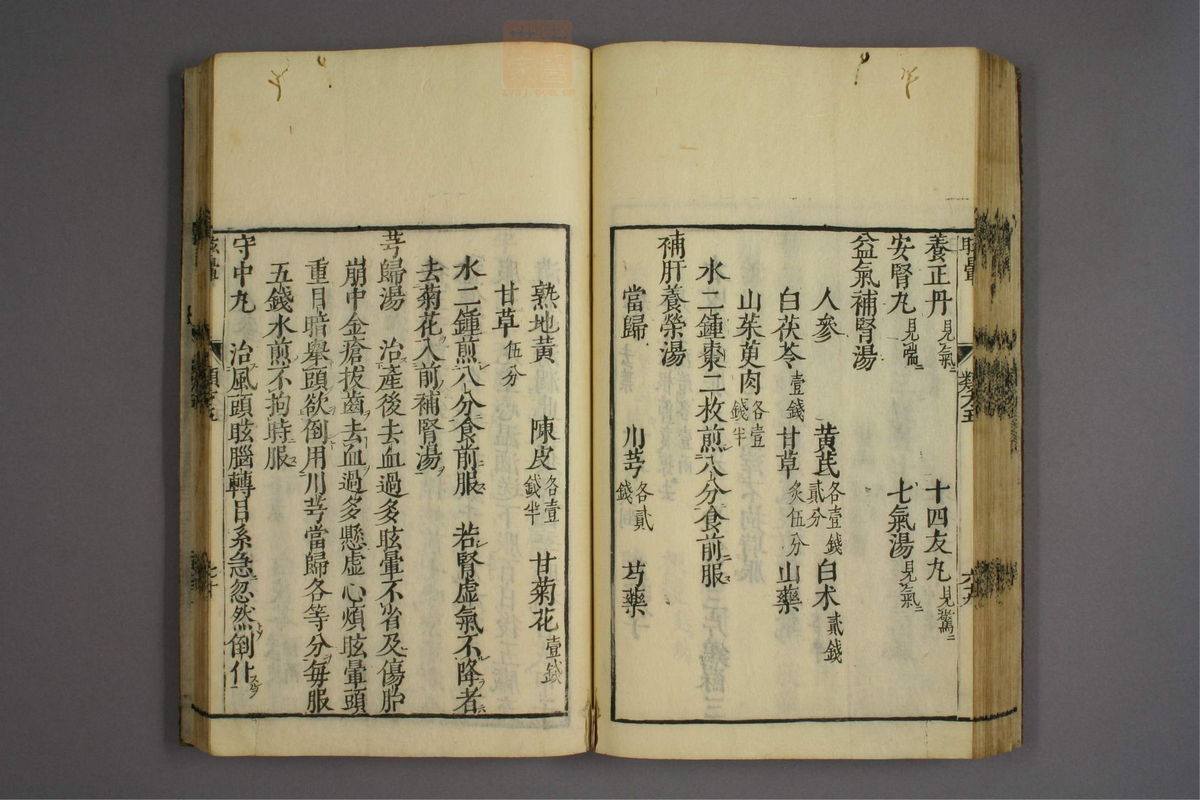 眩暈 類六五 六十九
養正丹見氣ニ 十四友丸見驚ニ
安腎丸見喘ニ 七氣湯見氣ニ
益氣補腎湯
人參 黄芪各壹錢貳分 白术貳錢
白茯苓壹錢 甘草炙伍分 山藥
山茱萸肉各壹錢半
水二鍾棗二枚煎八分食前服
補肝養榮湯
當歸 川芎各貳錢 芍藥
熟地黄 陳皮各壹錢半 甘菊花壹錢
甘草伍分
水二鍾煎八分食前服 若腎虚氣不降者
去菊花入前補腎湯
芎歸湯 治産後去血過多眩暈不省及傷胎
崩中金瘡拔齒去血過多懸虚心煩眩暈頭
重目暗舉頭欲倒用川芎當歸各等分毎服
五錢水煎不拘時服
守中丸 治風頭眩腦轉目系急忽然倒仆
眩暈 七十